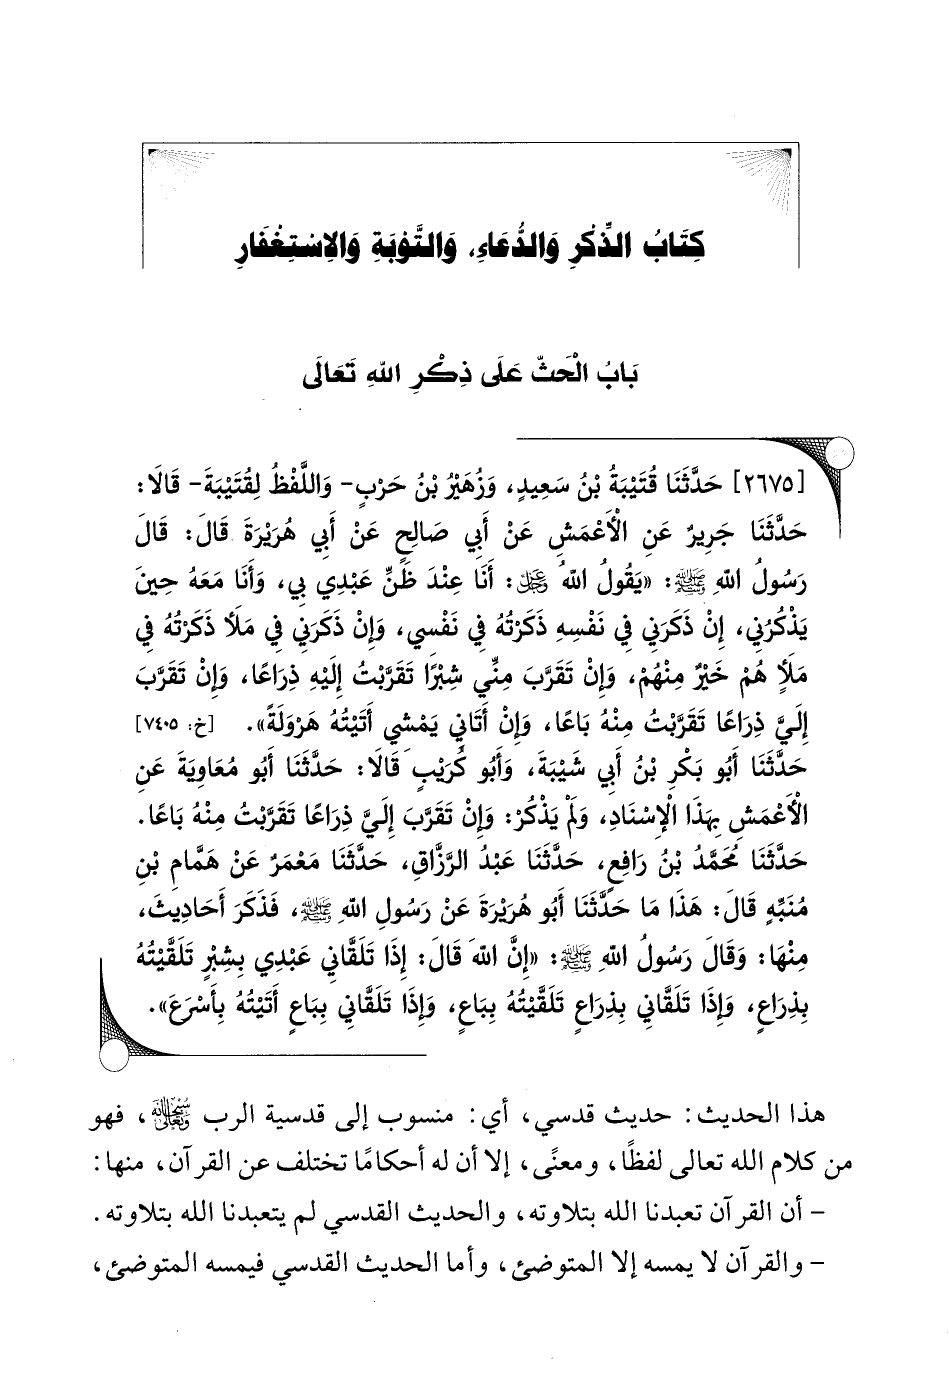 كِتَابُ الذِّكْرِ وَالدُّعَاءِ، وَالتَّوْبَةِ وَالِاسْتِغْفَارِ
بَابُ الْحَثِّ عَلَى ذِكْرِ اللهِ تَعَالَى
[٢٦٧٥] حَدَّثَنَا قُتَيْبَةُ بْنُ سَعِيدٍ، وَزُهَيْرُ بْنُ حَرْبٍ- وَاللَّفْظُ لِقُتَيْبَةَ- قَالَا:
حَدَّثَنَا جَرِيرٌ عَنِ الْأَعْمَشِ عَنْ أَبِي صَالِحٍ عَنْ أَبِي هُرَيْرَةَ قَالَ: قَالَ
رَسُولُ اللهِ ﷺ: «يَقُولُ اللهُ ﷿: أَنَا عِنْدَ ظَنِّ عَبْدِي بِي، وَأَنَا مَعَهُ حِينَ
يَذْكُرُنِي، إِنْ ذَكَرَنِي فِي نَفْسِهِ ذَكَرْتُهُ فِي نَفْسِي، وَإِنْ ذَكَرَنِي فِي مَلَأٍ ذَكَرْتُهُ فِي
مَلَأٍ هُمْ خَيْرٌ مِنْهُمْ، وَإِنْ تَقَرَّبَ مِنِّي شِبْرًا تَقَرَّبْتُ إِلَيْهِ ذِرَاعًا، وَإِنْ تَقَرَّبَ
إِلَيَّ ذِرَاعًا تَقَرَّبْتُ مِنْهُ بَاعًا، وَإِنْ أَتَانِي يَمْشِي أَتَيْتُهُ هَرْوَلَةً». [خ: ٧٤٠٥]
حَدَّثَنَا أَبُو بَكْرِ بْنُ أَبِي شَيْبَةَ، وَأَبُو كُرَيْبٍ قَالَا: حَدَّثَنَا أَبُو مُعَاوِيَةَ عَنِ
الْأَعْمَشِ بِهَذَا الْإِسْنَادِ، وَلَمْ يَذْكُرْ: وَإِنْ تَقَرَّبَ إِلَيَّ ذِرَاعًا تَقَرَّبْتُ مِنْهُ بَاعًا.
حَدَّثَنَا مُحَمَّدُ بْنُ رَافِعٍ، حَدَّثَنَا عَبْدُ الرَّزَّاقِ، حَدَّثَنَا مَعْمَرٌ عَنْ هَمَّامِ بْنِ
مُنَبِّهٍ قَالَ: هَذَا مَا حَدَّثَنَا أَبُو هُرَيْرَةَ عَنْ رَسُولِ اللهِ ﷺ، فَذَكَرَ أَحَادِيثَ،
مِنْهَا: وَقَالَ رَسُولُ اللهِ ﷺ: «إِنَّ اللهَ قَالَ: إِذَا تَلَقَّانِي عَبْدِي بِشِبْرٍ تَلَقَّيْتُهُ
بِذِرَاعٍ، وَإِذَا تَلَقَّانِي بِذِرَاعٍ تَلَقَّيْتُهُ بِبَاعٍ، وَإِذَا تَلَقَّانِي بِبَاعٍ أَتَيْتُهُ بِأَسْرَعَ».
هذا الحديث: حديث قدسي، أي: منسوب إلى قدسية الرب سُبْحَانَهُ وَتَعَالَى، فهو
من كلام الله تعالى لفظًا، ومعنًى، إلا أن له أحكامًا تختلف عن القرآن، منها:
- أن القرآن تعبدنا الله بتلاوته، والحديث القدسي لم يتعبدنا الله بتلاوته.
- والقرآن لا يمسه إلا المتوضئ، وأما الحديث القدسي فيمسه المتوضئ،